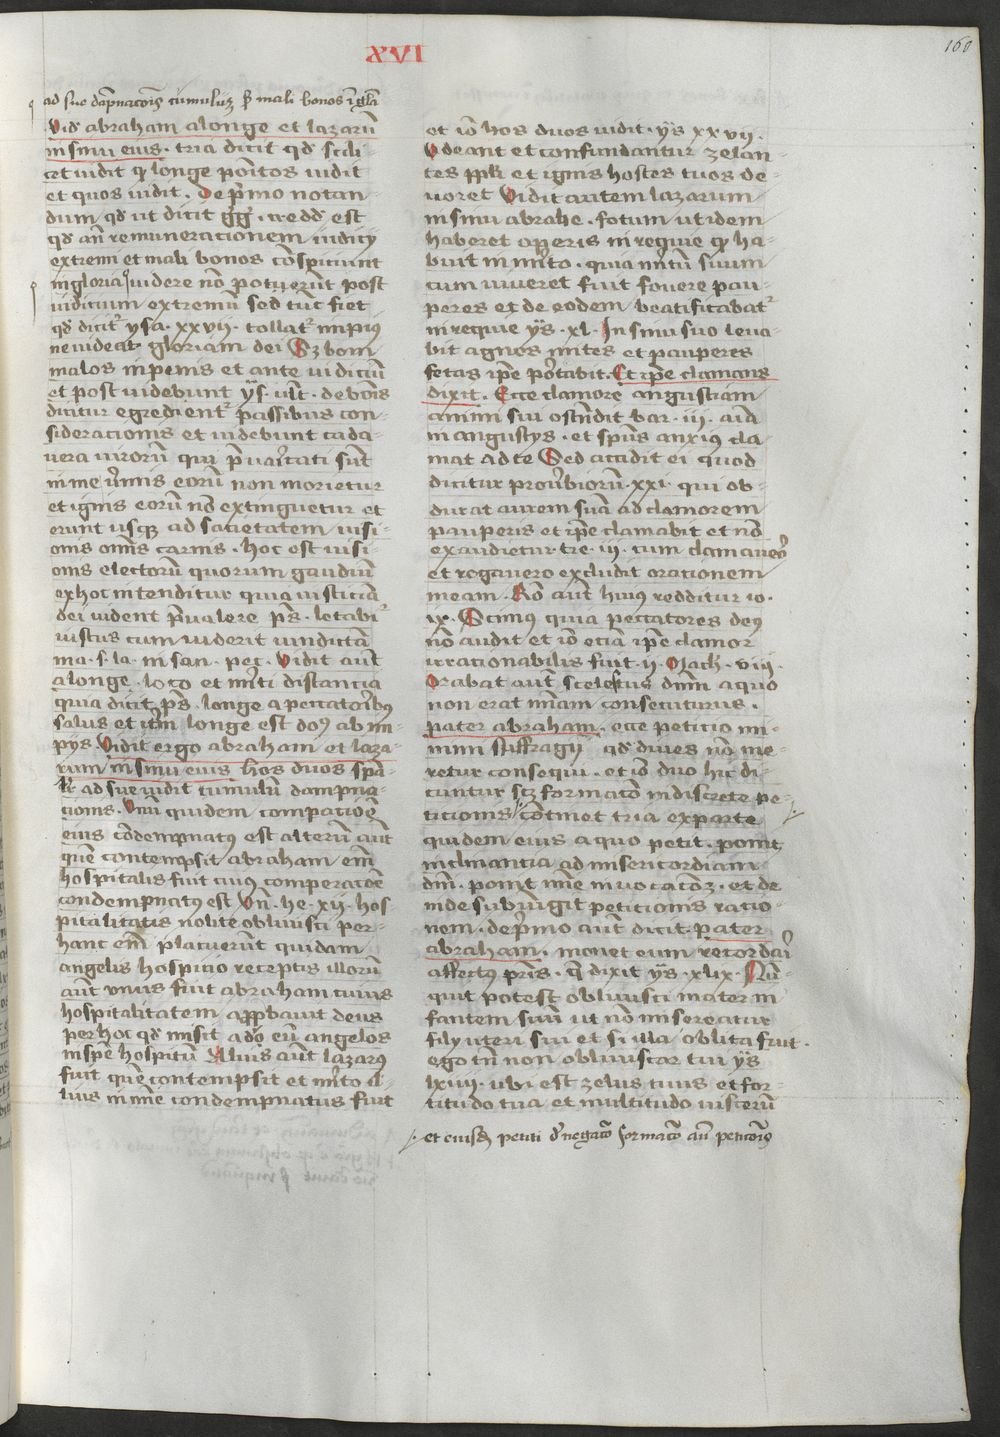 160
XVI
ad sue dāpnacōis cumulūz ꝙ mali bonos ī gl̄ia
Vid abraham a longe et lazarū
in sinu eius . tria dicit qd scili
cet vidit ꝙ longe positos vidit
et quos vidit . De p̄mo notan
dum qd ut dicit gḡ . credd est
qd an̄ remuneracionem iudicij
extremi et mali bonos conspiciunt
in gloria videre nō potuerūt post
iudicium extremū sed tūc fiet
qd dicitᵉ ysa . xxvij . tollatᵉ impius
ne videat gloriam dei Sz boni
malos in penis et ante iudiciū
et post videbunt ys . ult . de bonis
dicitur egredientᵉ passibus con-
sideracionis et videbunt cada-
vera virorū qui p̄varicati sūt
in me v̄mis eorū non morietur
et ignis eorū nō extinguetur et
erunt usqz ad sacietatem visi-
onis om̄is carnis . hoc est visi-
onis electorū quorum gaudiū
ex hoc intenditur quia iusticiā
dei vident p̄valere p̄s . letabiᵗ
iustus cum viderit vindictā
ma . s . la . in san . pec . Vidit aūt
a longe . loco et mīti distancia
quia dicit p̄s . longe a peccatoribꝰ
salus et itm̄ longe est dōs ab im-
pijs Vidit ergo abraham et laza-
rum in sinu eius hos duos spā-
lr̄ ad sue vidit cumulū dampna-
cionis . Unū quidem compacioē
eius cōdempnatꝰ est alterū aūt
quē contempsit abraham em̄
hospitalis fuit cuius comperacōe
condempnatꝰ est Vn̄ . he . xij . hos-
pitalitatis nolite oblivisci per-
hanc em̄ placuerūt quidam
angelis hospitio receptis illorū
aūt unus fuit abraham cuius
hospitalitatem approbavit deus
per hoc qd misit ad eū angelos
in spē hospitū Alius aūt lazarꝰ
fuit quē contempsit et mīto il-
lius in īme condempnatus fuit
et iō hos duos vidit . ys xxvij .
Videant et confundantur zelan-
tes ppli et ignis hostes tuos de-
voret Vidit autem lazarum
in sinu abrahe . fotum ut idem
haberet operis in requie ꝙ ha-
buit in mīto . quia mītū suum
cum viveret fuit fovere pau-
peres ex de eodem beatificabatᵉ
in requie ys . xl . In sinu suo leva-
bit agnos mites et pauperes
fetas ip̄e portabit . Et ip̄e clamans
dixit . Ecce clamorē angustiam
animi sui ostendit bar . iij . aīa
in angustijs . et sp̄us anxius cla-
mat ad te Sed accidit ei quod
dicitur proūbiorū . xxi . qui ob-
durat aurem suā ad clamorem
pauperis et ip̄e clamabit et nō
exaudietur tre . iij . cum clamavero
et rogavero excludit orationem
meam . Rō aūt huius redditur io .
ix . Scimus quia peccatores deus
nō audit et iō eciā ip̄e clamor
irracionabilis fuit . ij . Mach . viij .
Orabat aūt scelestus dn̄m a quo
non erat mīam consecuturus .
pater abraham . ecce peticio mi-
nimi suffragij qd dives nō me-
retur consequi . et iō duo hic di-
cuntur scz formacō indiscrete pe-
ticionis cōtinet tria ex parte
quidem eius a quo petit . ponit
inclinantia ad misericordiam
dn̄i . ponit īme invocacōz . et de
inde subiūgit peticionis racio-
nem . de p̄mo aūt dicit . pater
abraham . monet eum recordari
affectus pr̄is . q̄ dixit ys . xlix . Nū-
quit potest oblivisci mater in
fantem suū ut nō misereatur
filij uteri sui et si illa oblita fuit .
ego tn̄ non obliviscor tui ys
lxiij . ubi est zelus tuus et for-
titudo tua et multitudo viscerū
et eiusd petiti d̄ negatō formatō aūt peticōis